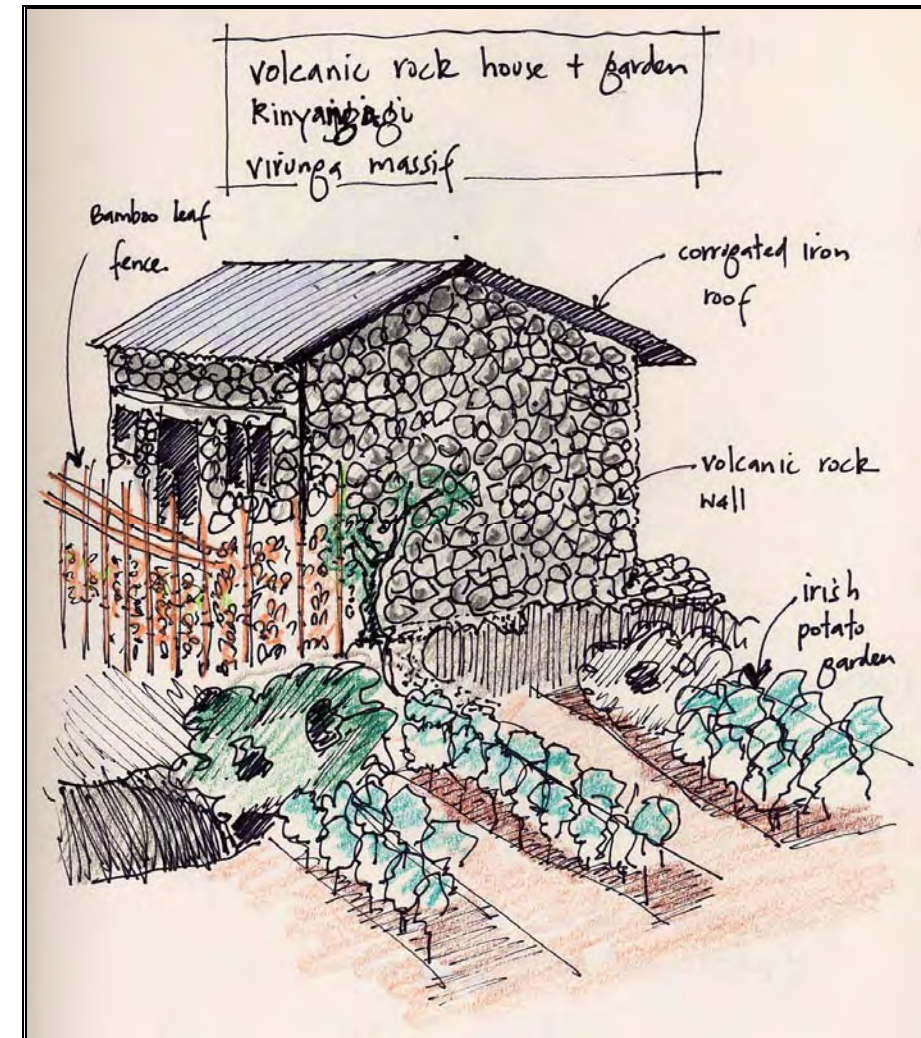 volcanic rock house + garden
virunga massif
Bamboo leaf
fence
corrugated iron
roof
volcanic rock
wall
irish
potato
garden